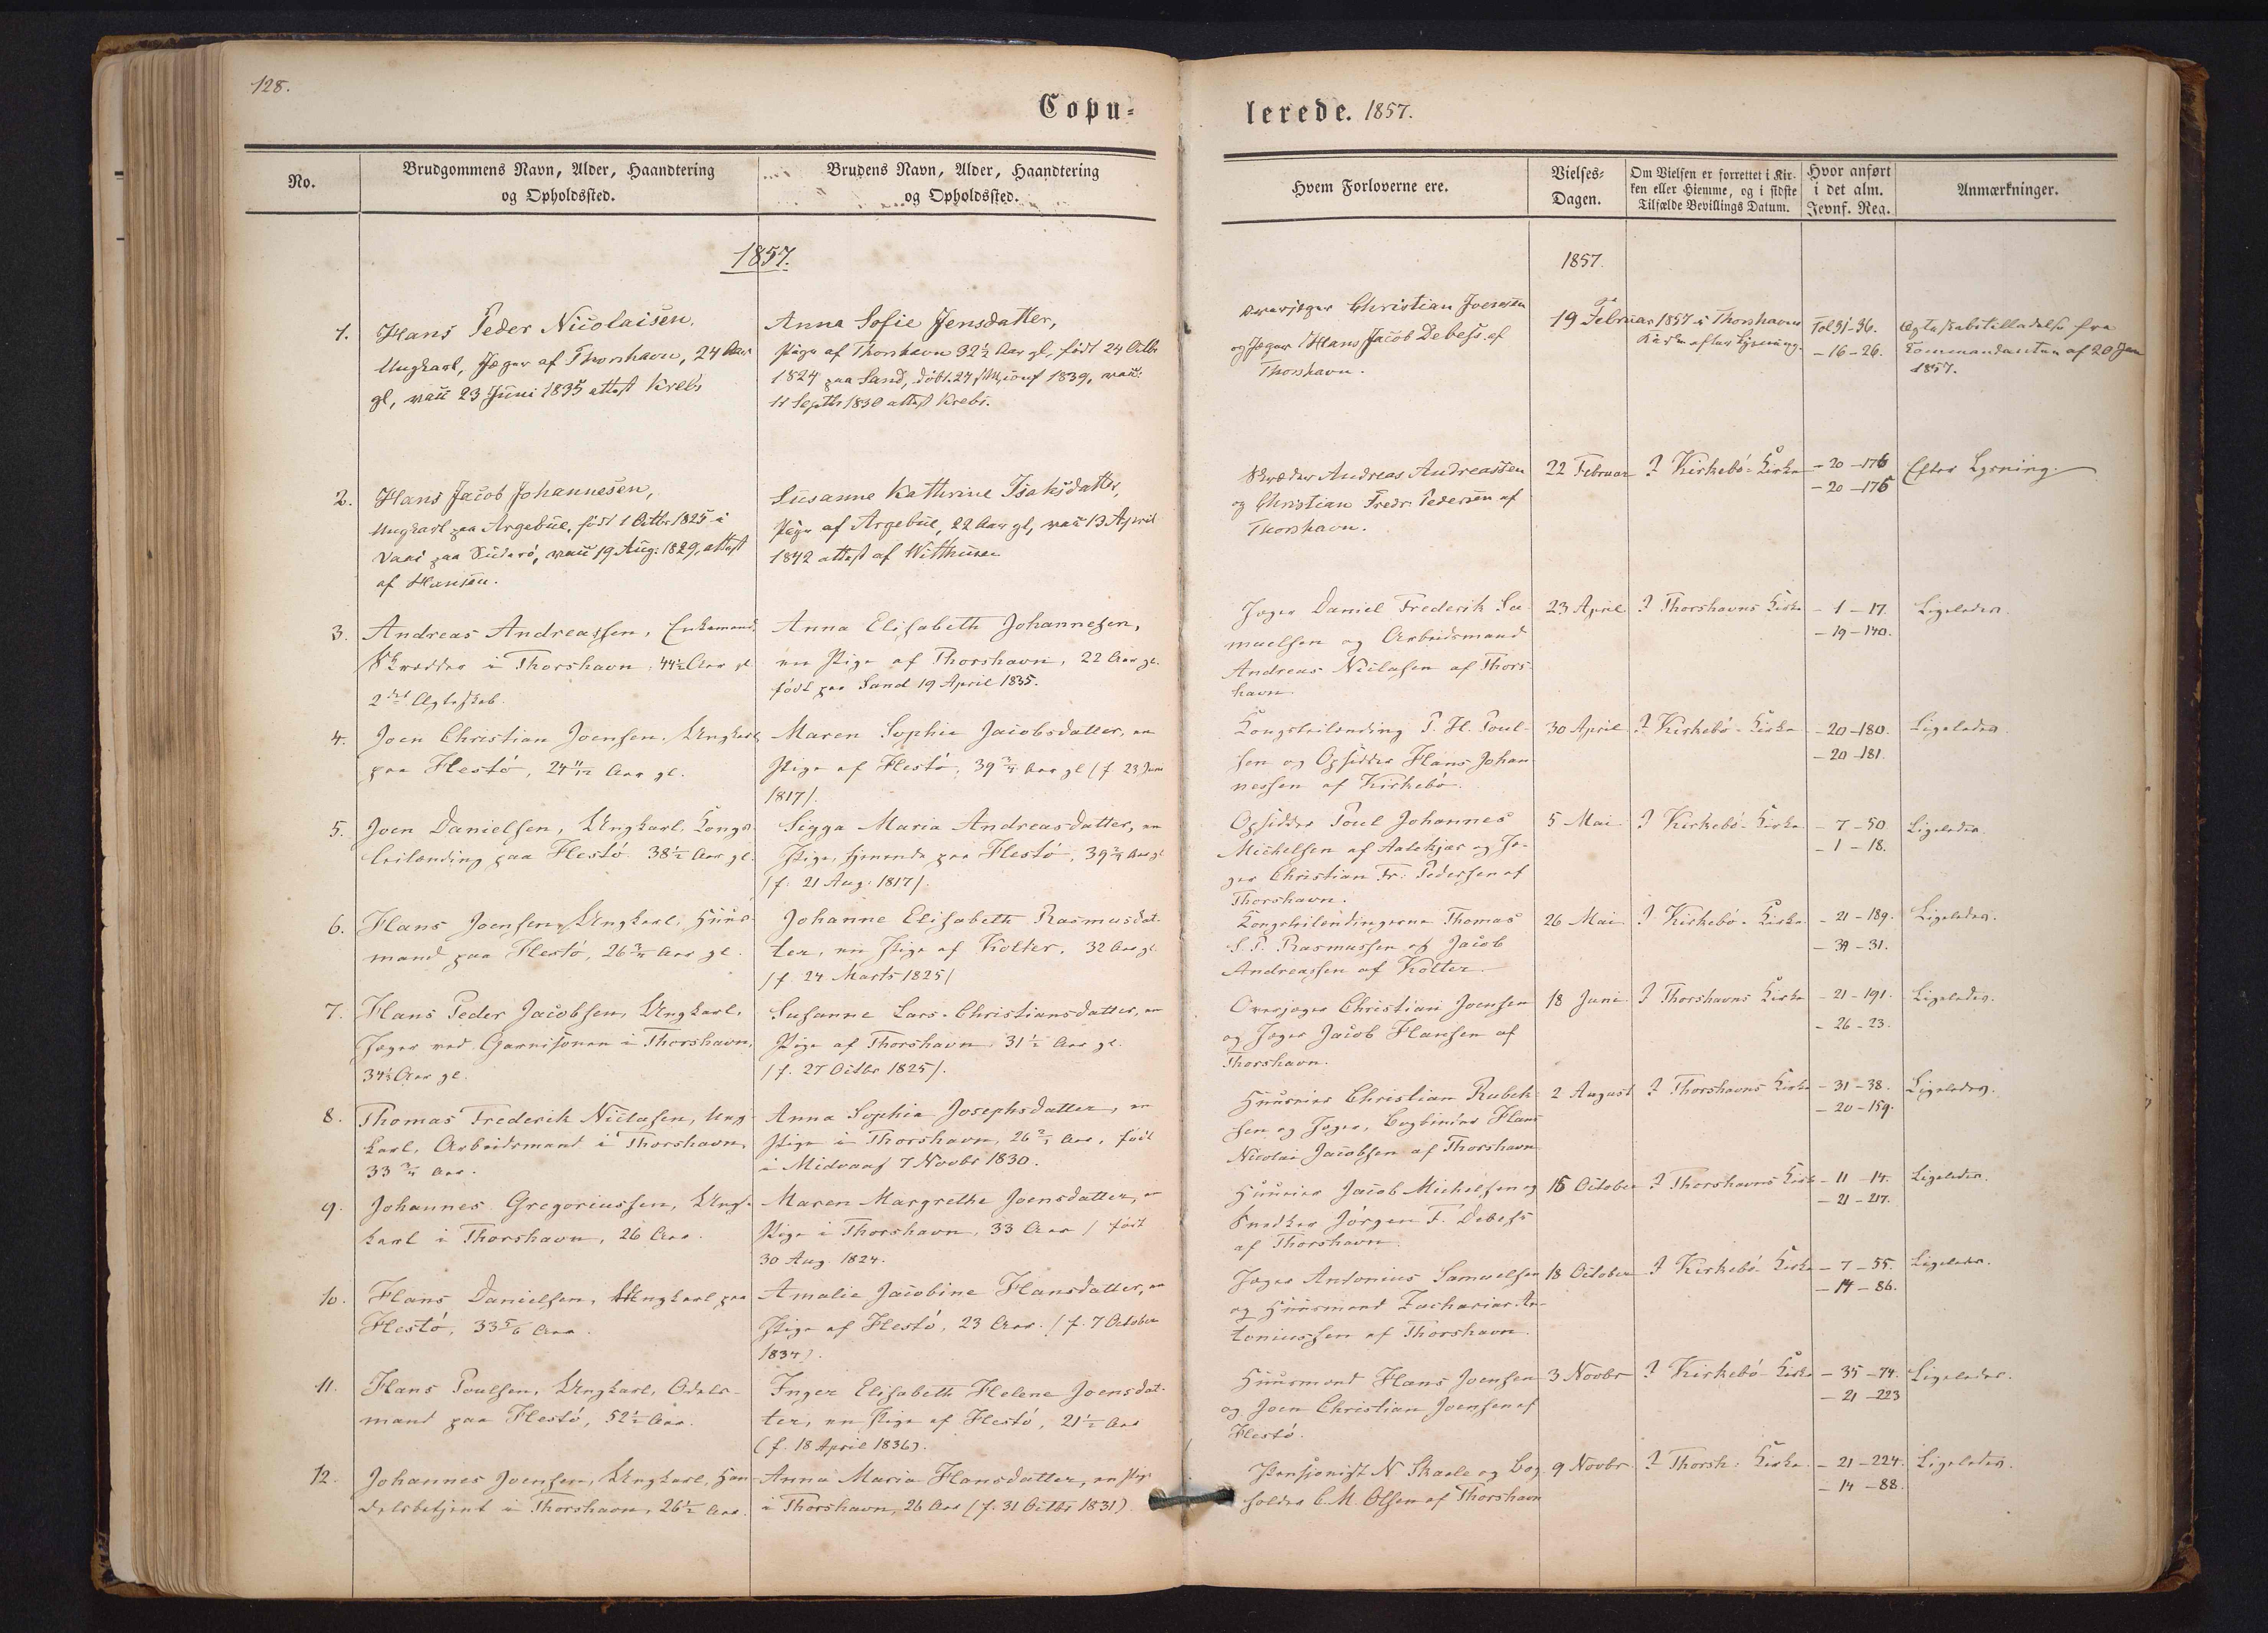 128.
Copu-
lerede. 1857.
No.
Brudgommens Navn, Alder, Haandtering
og Opholdssted.
Brudens Navn, Alder, Haandtering
og Opholdssted.
Hvem Forloverne ere.
Vielses-
Dagen.
Om Vielsen er forrettet i Kir-
ken eller Hjemme, og i sidste
Tilfælde Bevillings Datum.
Hvor anført
i det alm.
Jevnf. Reg.
Anmærkninger.
1857.
1857.
1.
Hans Peder Nicolaisen,
Ungkarl, Jæger af Thorshavn, 24 Aar
gl, vacc 23 Juni 1835 attest Krebs
Anna Sofie Jensdatter,
Pige af Thorshavn 32½ Aar gl, født 24 Octbr
1824 paa Sand, döbt. 27 conf 1839, vacc:
11 Septbr 1830 attest Krebs.
Overjæger Christian Joensen
og Jæger Hans Jacob Debess af
Thorshavn.
19 Februar 1857 i Thorshavns
Kirke efter Lysning.
Fol 31-36.
- 16-26.
Ægteskabstilladelse fra
Commandanten af 20 Jan
1857.
2.
Hans Jacob Johannesen,
Ungkarl paa Argebue, födt 1 Octbr 1825 i
Vaai paa Suderö, vacc 19 Aug: 1829, attest
af Hansen.
Susanne Kathrine Isaksdatter,
Pige af Argebue, 22 Aar gl, vacc 13 April
1842 attest af Withusen
Skræder Andreas Andreassen
og Christian Fredr. Pedersen af
Thorshavn.
22 Februar
I Kirkebö-Kirke
- 20-176
- 20-175
Efter Lysning.
3.
Andreas Andreassen, Enkemand
Skrædder i Thorshavn, 44½ Aar gl
2det Ægteskab.
Anna Elisabeth Johannesen,
en Pige af Thorshavn, 22 Aar gl.
födt paa Sand 19 April 1835.
Jæger Daniel Frederik Sa-
muelsen og Arbeidsmand
Andreas Niclasen af Thors-
havn.
23 April
I Thorshavns Kirke
- 1-17.
- 19-140.
Ligeledes.
4.
Joen Christian Joensen, Ungkarl
paa Hestö, 24 11/12 Aar gl.
Maren Sophie Jacobsdatter, en
Pige af Hestö, 39¾ Aar gl (f. 23 Juni
1817).
Kongsleilænding P. H. Poul-
sen og Opsidder Hans Johan-
nessen af Kirkebö.
30 April
I Kirkebö-Kirke
- 20-180.
- 20-181.
Ligeledes.
5.
Joen Danielsen, Ungkarl, Kongs-
leilænding paa Hestö 38½ Aar gl.
Sigga Maria Andreasdatter, en
Pige, tjenende paa Hestö, 39¾ Aar gl
(f. 21 Aug: 1817).
Opsidder Poul Johannes
Michelsen af Aalekjær og Jæ-
ger Christian Fr. Pedersen af
Thorshavn.
5 Mai
I Kirkebö-Kirke
- 7-50
- 1-18.
Ligeledes.
6.
Hans Joensen, Ungkarl, Huus-
mand paa Hestö, 26¾ Aar gl.
Johanne Elisabeth Rasmusdat-
ter, en Pige af Kolter, 32 Aar gl.
(f. 24 Marts 1825)
Kongsleilendingerne Thomas
S. P. Rasmussen og Jacob
Andreassen af Kolter.
26 Mai
I Kirkebö-Kirke
- 21-189.
- 39-31.
Ligeledes.
7.
Hans Peder Jacobsen, Ungkarl,
Jæger ved Garnisonen i Thorshavn,
34½ Aar gl.
Susanne Lars-Christiansdatter, en
Pige af Thorshavn 31½ Aar gl.
(f. 27 Octbr 1825).
Overjæger Christian Joensen
og Jæger Jacob Hansen af
Thorshavn.
18 Juni
I Thorshavns Kirke
- 21-191.
- 26-23.
Ligeledes.
8.
Thomas Frederik Niclasen, Ung-
karl, Arbeidsmand i Thorshavn,
33¾ Aar.
Anna Sophie Josephsdatter, en
Pige i Thorshavn, 26¾ Aar, født
i Midvaag 7 Novbr 1830.
Huuseier Christian Rubek-
sen og Jæger, Bogbinder Hans
Nicolai Jacobsen af Thorshavn
2 August
I Thorshavns Kirke
- 31-38.
- 20-159.
Ligeledes.
9.
Johannes Gregoriussen, Ung-
karl i Thorshavn, 26 Aar.
Maren Margrethe Joensdatter, en
Pige i Thorshavn, 33 Aar (født
30 Aug. 1824.
Huuseier Jacob Michelsen og
Snedker Jörgen F. Debess
af Thorshavn.
15 October
I Thorshavns Kirke
- 11-14.
- 21-217.
Ligeledes.
10.
Hans Danielsen, Ungkarl paa
Hestö, 33 5/6 Aar.
Amalie Jacobine Hansdatter, en
Pige af Hestö, 23 Aar. (f. 7 October
1834).
Jæger Antonius Samuelsen
og Huusmand Zacharias An-
toniussen af Thorshavn.
18 October
I Kirkebö Kirke
- 7-55.
- 14-86.
Ligeledes.
11.
Hans Poulsen, Ungkarl, Odels-
mand paa Hestö, 52½ Aar.
Inger Elisabeth Helene Joensdat-
ter, en Pige af Hestö, 21½ Aar
(f. 18 April 1836).
Huusmand Hans Joensen
og Joen Christian Joensen af
Hestö.
3 Novbr
I Kirkebö Kirke
- 35-74.
- 21-223
Ligeledes.
12.
Johannes Joensen, Ungkarl, Han-
delsbetjent i Thorshavn, 26½ Aar.
Anna Maria Hansdatter, en Pige
i Thorshavn, 26 Aar (f. 31 Octbr 1831)
Pensionist N Skaale og Bog-
holder C. M. Olsen af Thorshavn
9 Novbr.
I Thorsh: Kirke.
- 21-224.
- 14-88.
Ligeledes.